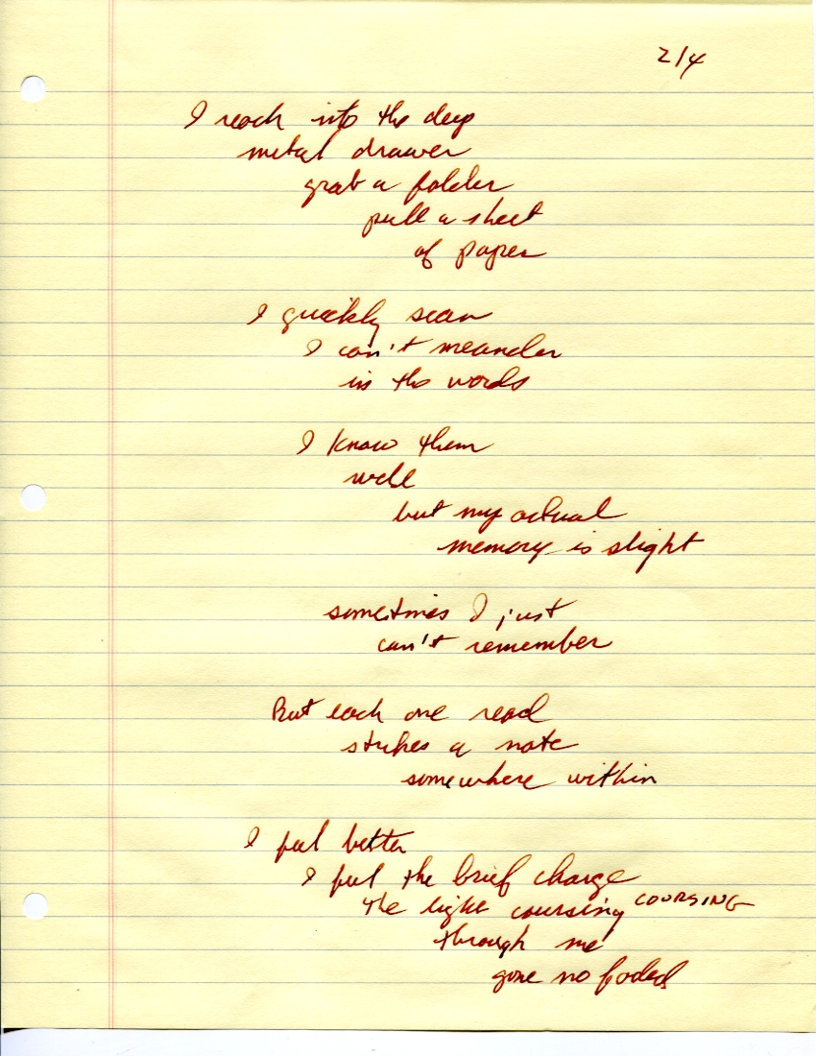 2/4
I reach into the deep
metal drawer
grab a folder
pull a sheet
of paper
I quickly scan
I can't meander
in the words
I know them
well
but my actual
memory is slight
sometimes I just
can't remember
But each one read
strikes a note
somewhere within
I feel better
I feel the brief charge
the light coursing COURSING
through me
gone no faded